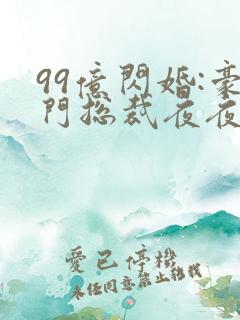 99億閃婚:豪
門總裁夜夜
愛已停機
未經同意禁止轉載